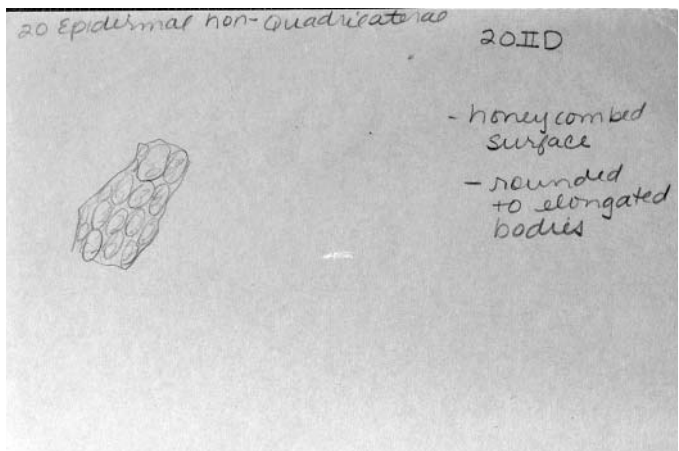 20 Epidermal non-Quadrilateral
20IID
- honeycombed
surface
- rounded
to elongated
bodies